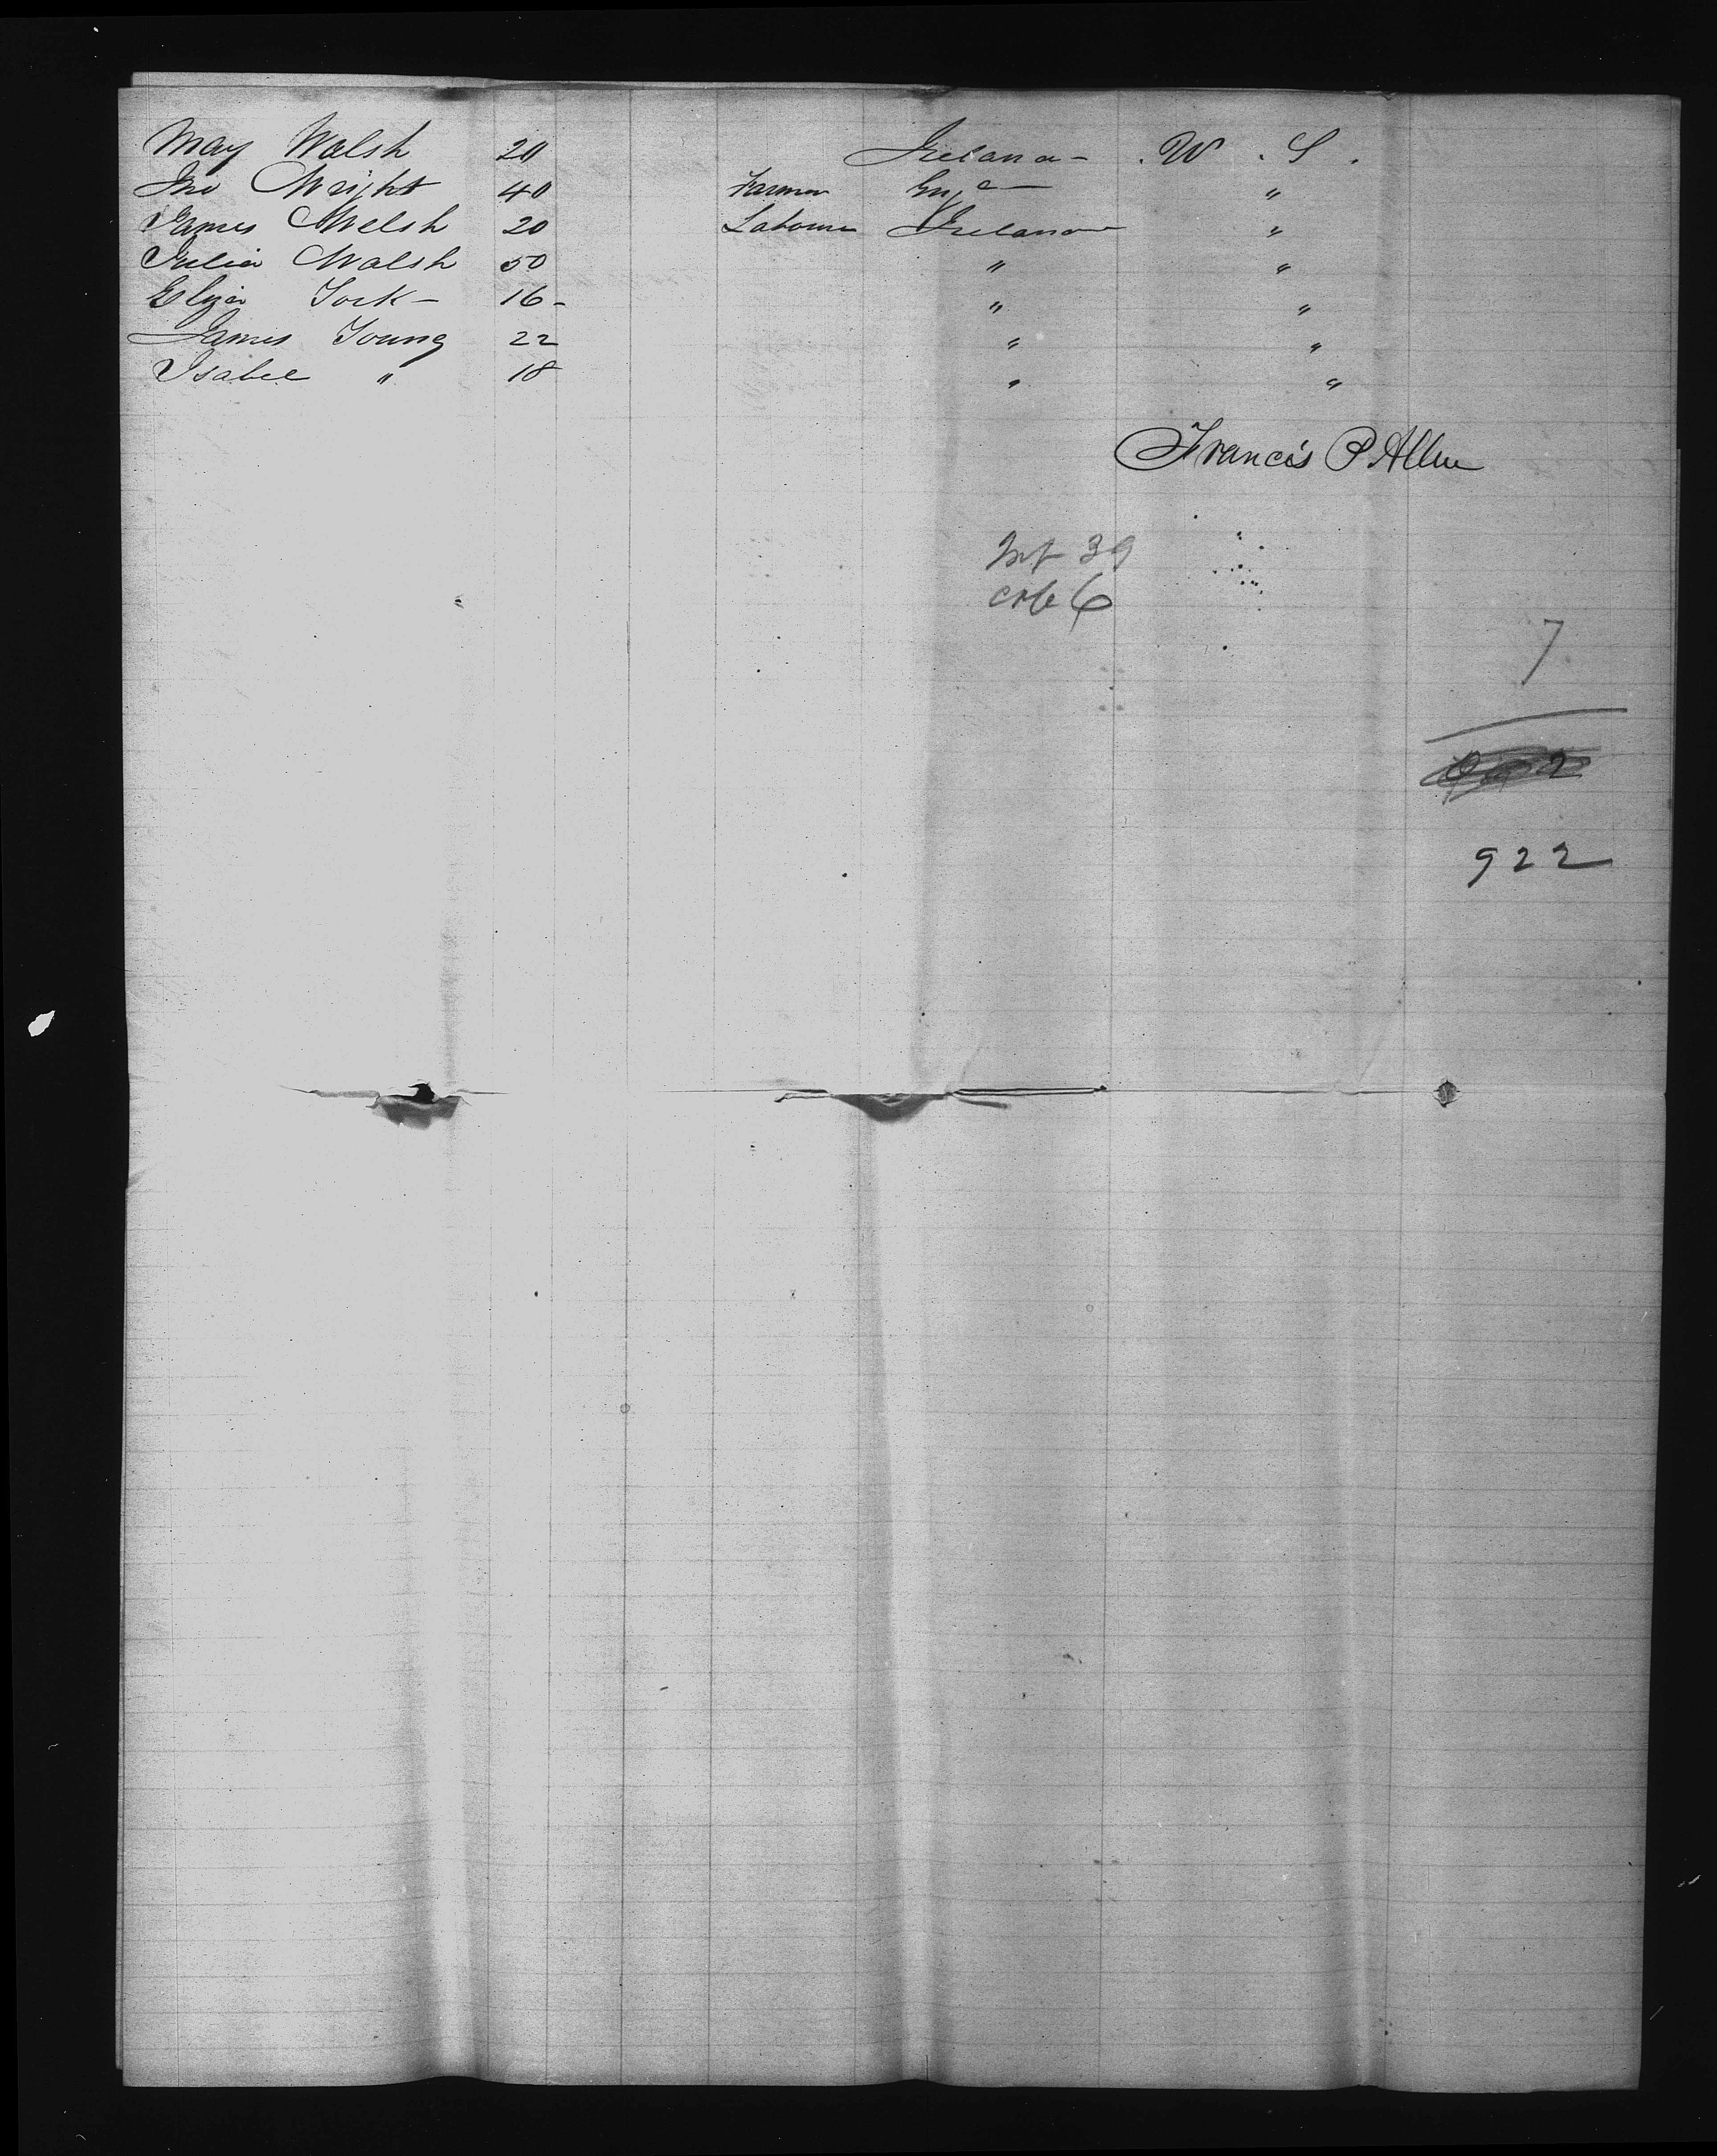 May Walsh 20 Ireland - . U . S .
Jno Wright 40 Farmer Engd "
James Welsh 20 Labourer Ireland "
Julia Walsh 50 " "
Eliza York - 16 - " "
James Young 22 " "
Isabel " 18 " "
Francis P Allen
39
6
7
922